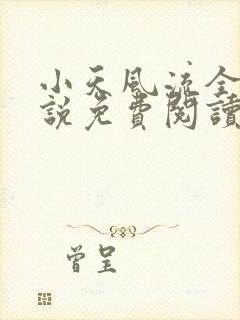 小天風流全
說免費閱讀
曾呈